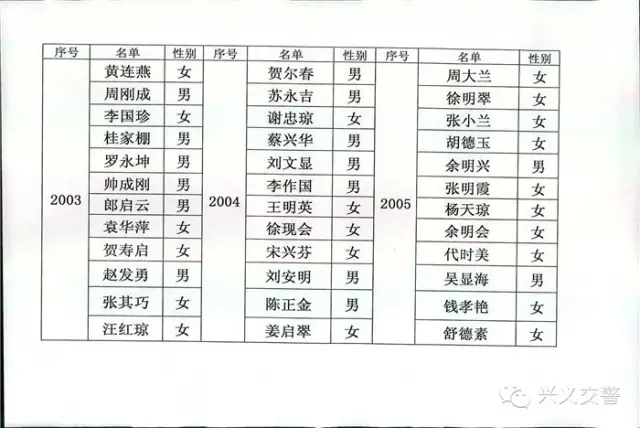 序号 名单 性别 序号 名单 性别 序号 名单 性别
黄连燕 女 贺尔春 男 周大兰 女
周刚成 男 苏永吉 男 徐明翠 女
李国珍 女 谢忠琼 女 张小兰 女
桂家棚 男 蔡兴华 男 胡德玉 女
罗永坤 男 刘文显 男 余明兴 男
帅成刚 男 李作国 男 张明霞 女
2003 郎启云 男 2004 王明英 女 2005 杨天琼 女
袁华萍 女 徐现会 女 余明会 女
贺寿启 女 宋兴芬 女 代时美 女
赵发勇 男 刘安明 男 吴显海 男
张其巧 女 陈正金 男 钱孝艳 女
汪红琼 女 姜启翠 女 舒德素 女
兴义交警